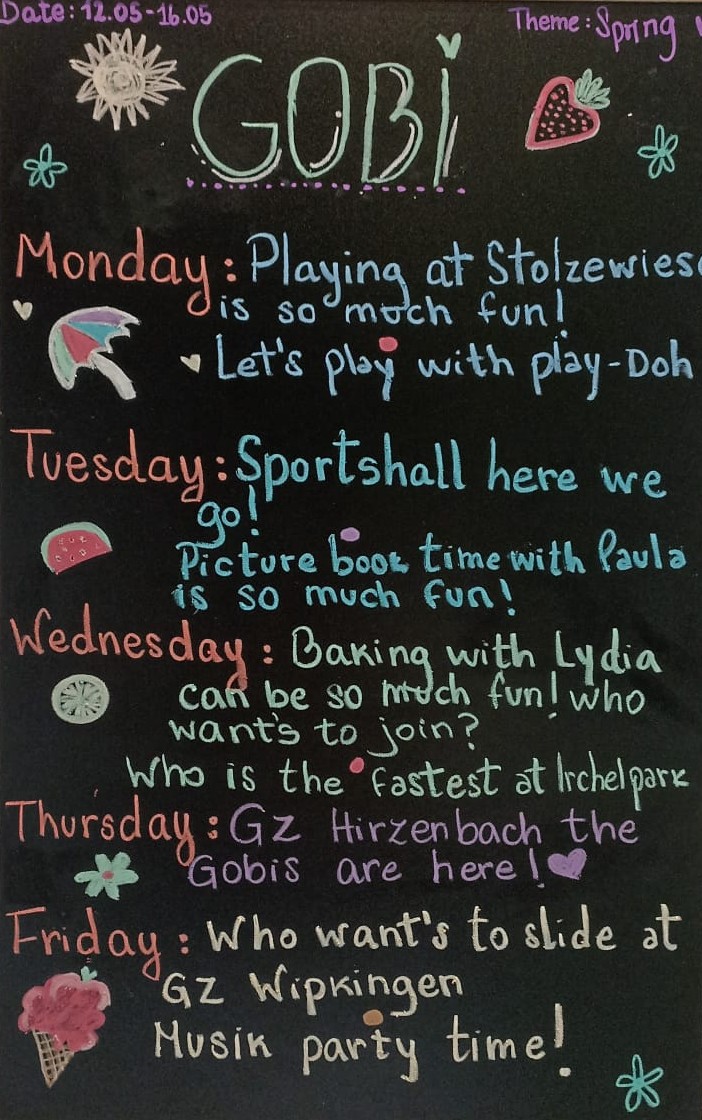 Date: 12.05-16.05
Theme: Spring
GOBi
Monday: Playing at Stolzewiese
is so much fun!
Let's play with play-Doh
Tuesday: Sportshall here we
go!
Picture book time with Paula
is so much fun!
Wednesday: Baking with Lydia
can be so much fun! who
want's to join?
Who is the fastest at Irchelpark
Thursday: GZ Hirzenbach the
Gobis are here!
Friday: Who want's to slide at
GZ Wipkingen
Musik party time!